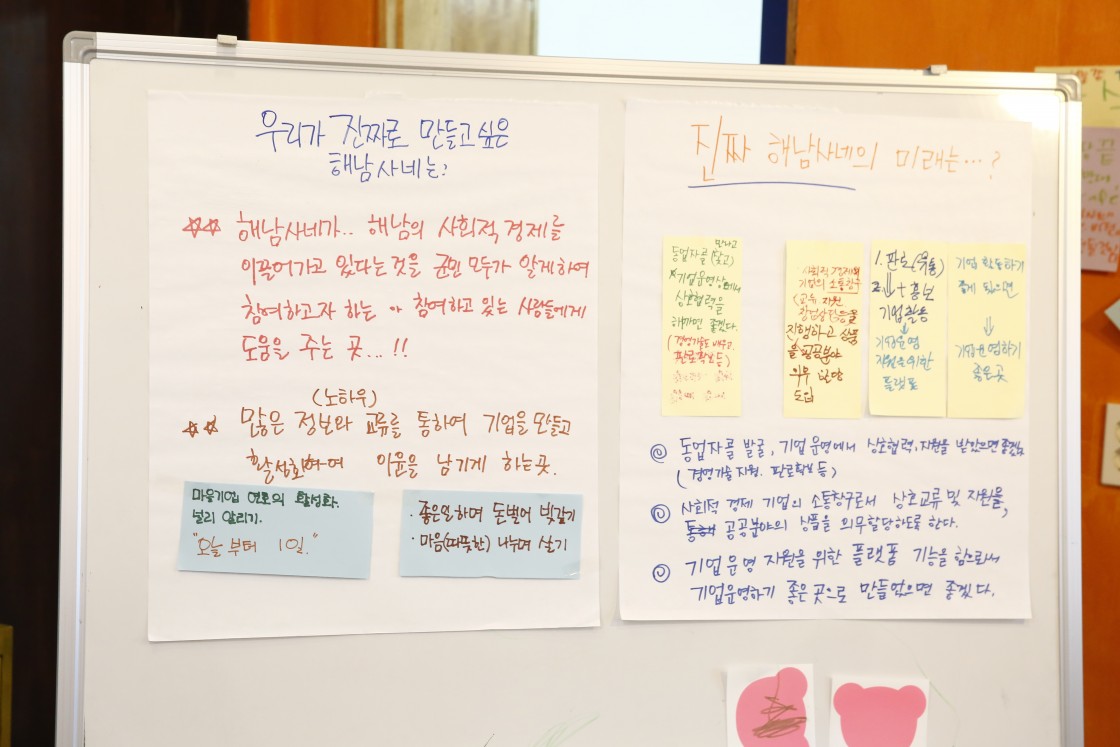 우리가 진짜로 만들고 싶은
해남사네는:
☆☆ 해남사네가.. 해남의 사회적 경제를
이끌어가고 있다는것을 군민 모두가 알게하여
참여하고자 하는 참여하고 있는 사람들에게
도움을 주는 곳...!!
(노하우)
☆☆ 많은 정보와 교류를 통하여 기업을 만들고
활성화하여 이윤을 남기게 하는곳.
마을기업 연혼의 활성화.
널리 알리기.
"오늘 부터 1일."
· 좋은일하며 돈벌어 빚갚기
· 마음(따뜻한) 나누며 살기
진짜 해남사네의 미래는...?
만나고
동업자를 (찾고)
기업운영상에서
상호협력을
해가면 좋겠다.
(경영기술도 배우고.
판로확보 등)
사회적 경제
기업의 소통창구
(교육 자원
진행하고 상품
을 공공분야
의무 할당
도입
1. 판로(유통)
+ 홍보
기업활동
↓
기업운영
지원을위한
플랫폼
기업 활동하기
좋게 됐으면
⇓
기업운영하기
좋은곳
◎ 동업자를 발굴, 기업운영에서 상호협력, 지원을 받았으면좋겠다
(경영기술지원. 판로확보 등)
◎ 사회적 경제 기업의 소통창구로서 상호교류 및 지원을,
통해 공공분야의 상품을 의무할당하도록 한다.
◎ 기업운영 지원을 위한 플랫폼 기능을 함으로서
기업운영하기 좋은 곳으로 만들었으면 좋겠다.